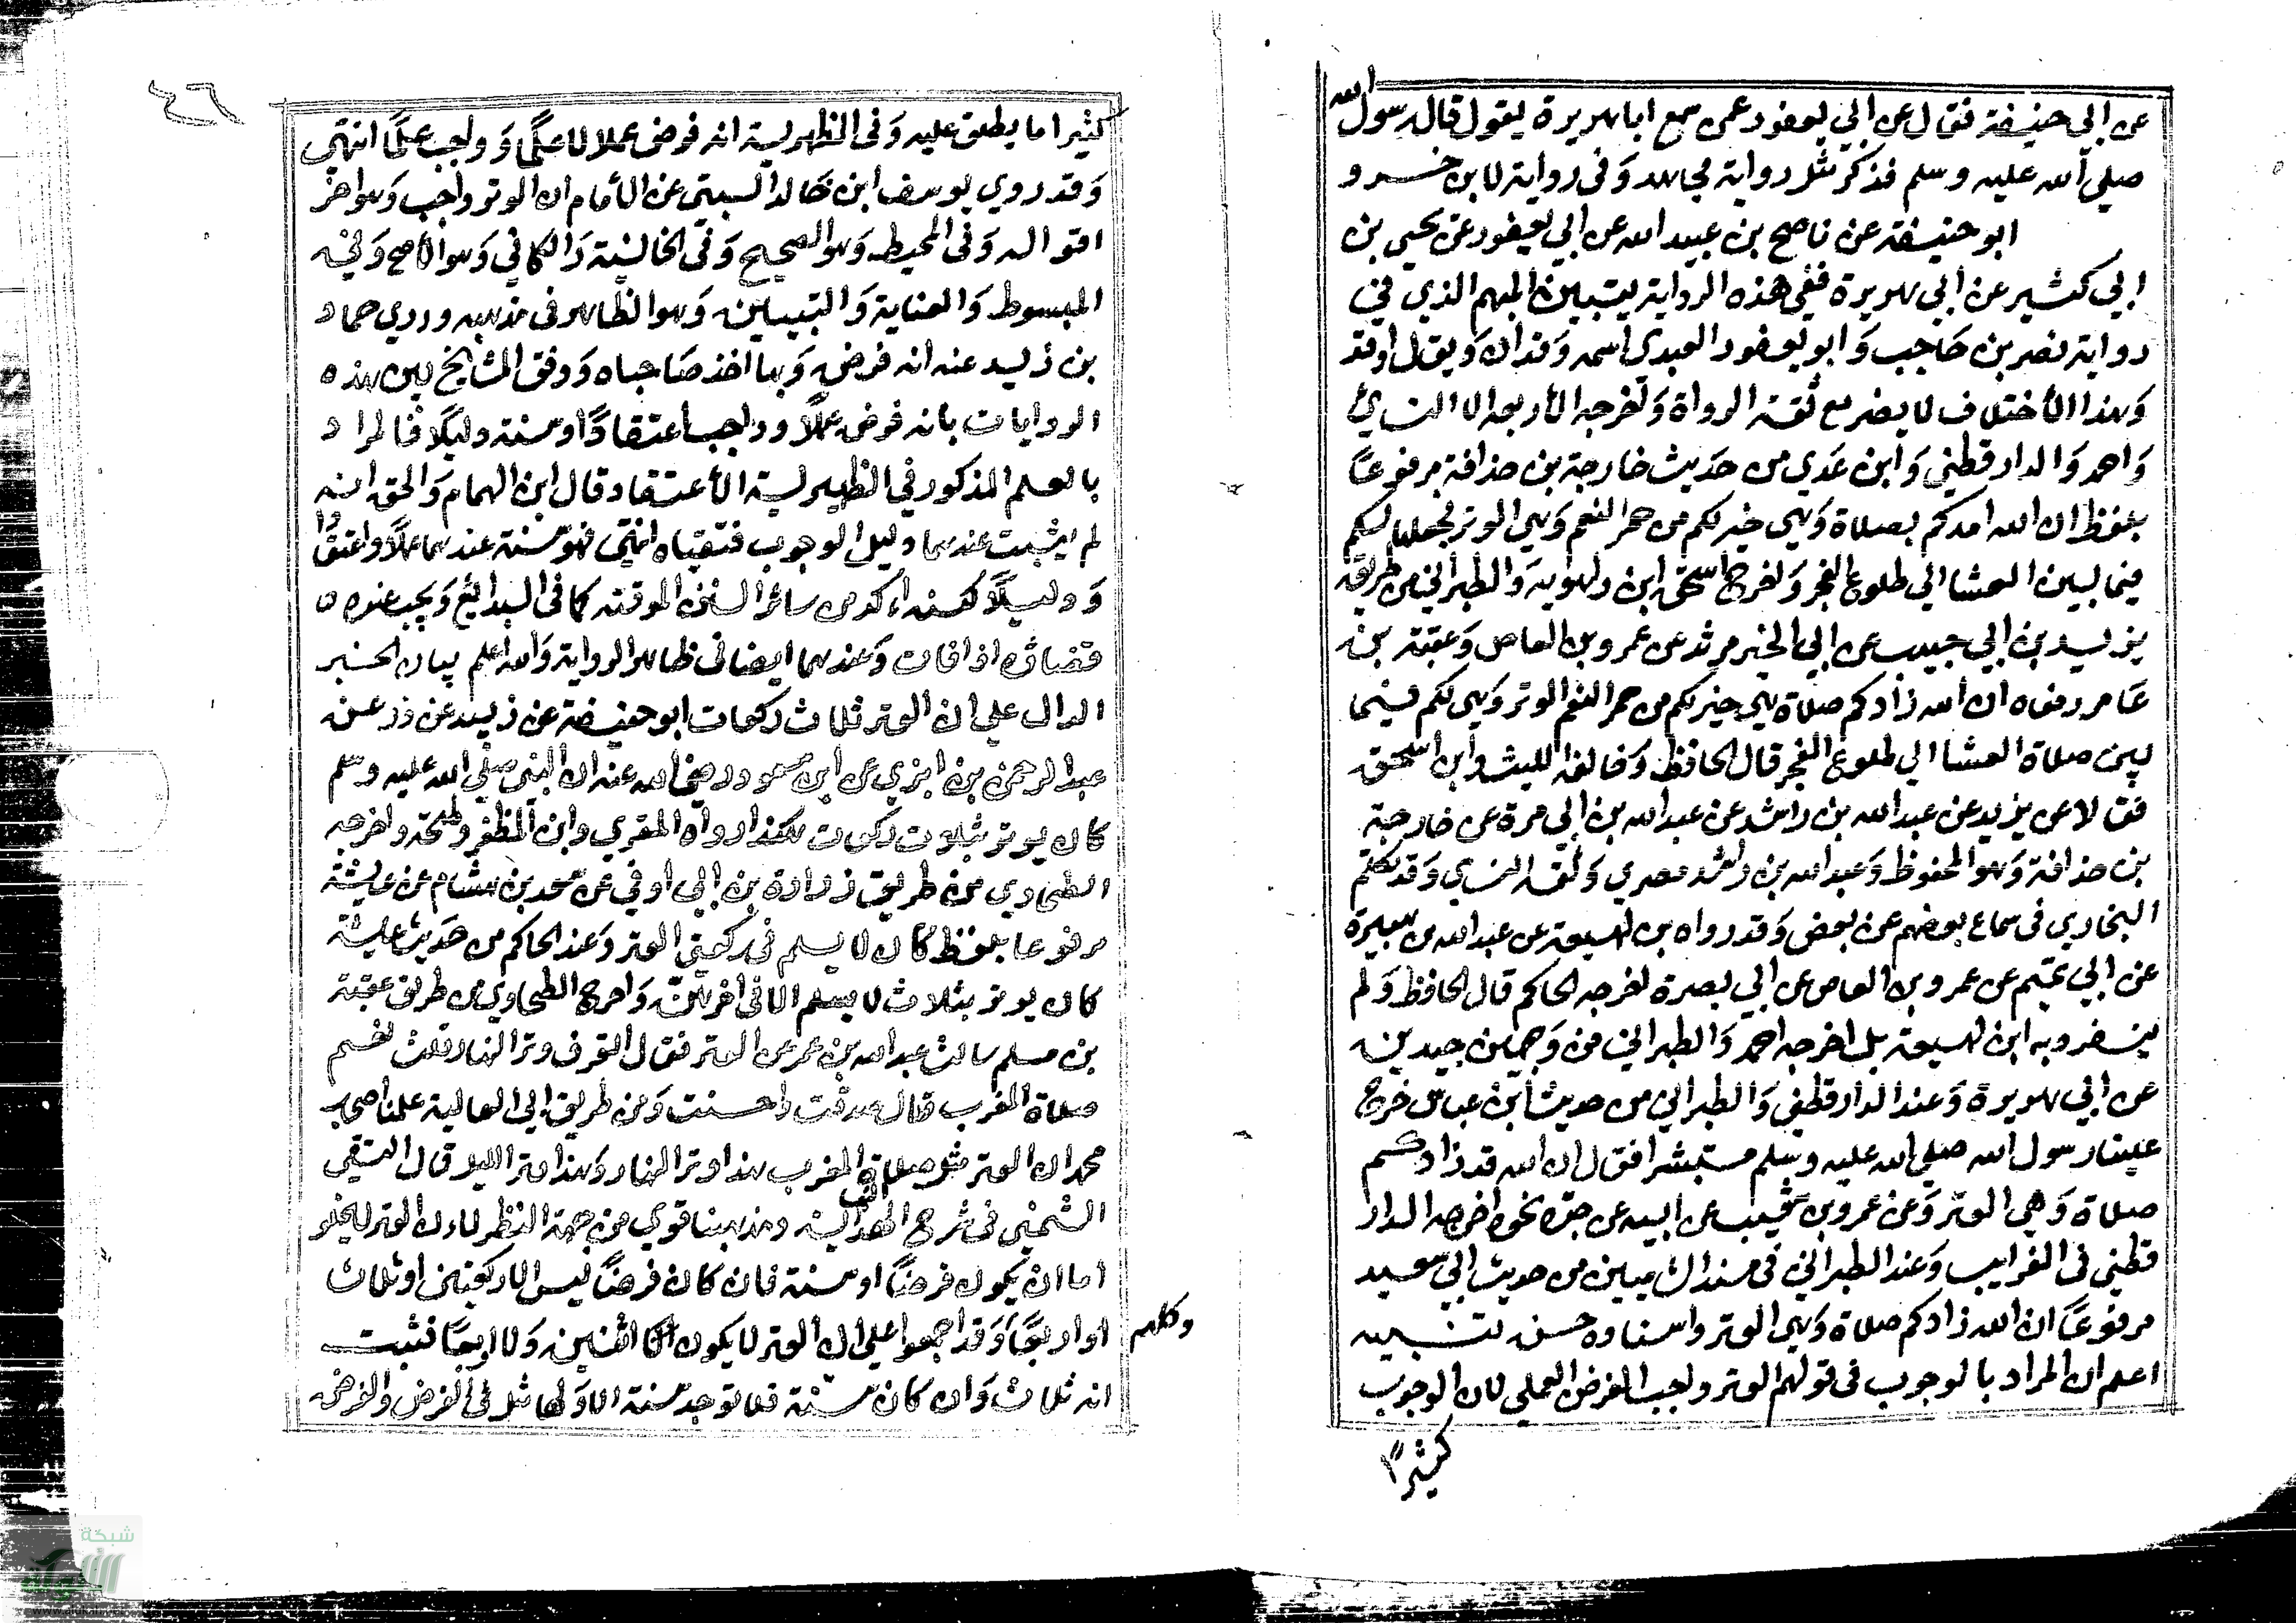 عن ابي حنيفة فقال عن ابي يعفور عمن سمع ابا هريرة يقول قال رسول الله
صلي الله عليه وسلم فذكر مثل رواية مجاهد وفي رواية لابن خسرو
ابو حنيفة عن ناصح بن عبيد الله عن ابي يعفور عن يحيي بن
ابي كثير عن ابي هريرة ففي هذه الرواية يتبين المبهم الذي في
رواية نصر بن حاجب وابو يعفور العبدي اسمه وقدان ويقال اوقد
وهذا الأختلاف لا يضر مع ثقة الرواة واخرجه الأربعه الا النسائي
واحمد والدارقطني وابن عدي من حديث خارجة بن حذافة مرفوعاً
بلفظ ان الله امدكم بصلاة وهي خير لكم من حمر النعم وهي الوتر فجعلها لكم
فيما بين العشا الي طلوع الفجر واخرج اسحق ابن راهويه والطبراني من طريق
يزيد بن ابي حبيب عن ابي الخير مرثد عن عمرو بن العاص وعقبة بن
عامر رفعاه ان الله زادكم صلاة هي خير لكم من حمر النعم الوتر وهي لكم فيما
بين صلاة العشا الي طلوع الفجر قال الحافظ وخالفه الليث وابن اسحق
فقالا عن يزيد عن عبد الله بن راشد عن عبد الله بن ابي مرة عن خارجة
بن حذافة وهو المحفوظ وعبد الله بن راشد مصري وثقه النسائي وقد تكلم
البخاري في سماع بعضهم عن بعض وقد رواه بن لهيعة عن عبد الله بن هبيرة
عن ابي تميم عن عمرو بن العاص عن ابي بصرة اخرجه الحاكم قال الحافظ ولم
ينفرد به ابن لهيعة بل اخرجه احمد والطبراني من وجهين جيدين
عن ابي هريرة وعند الدارقطني والطبراني من حديث ابن عباس خرج
علينا رسول الله صلي الله عليه وسلم مستبشرا فقال ان الله قد زادكم
صلاة وهي الوتر وعن عمرو بن شعيب عن ابيه عن جده نحوه اخرجه الدار
قطني في الغرايب وعند الطبراني في مسند الشاميين من حديث ابي سعيد
مرفوعاً ان الله زادكم صلاة وهي الوتر واسناده حسن تنبيه
اعلم ان المراد بالوجوب في قولهم الوتر واجب الفرض العملي لان الوجوب
كثيراً
٤٦
كثيرا ما يطلق عليه وفي الظهرية انه فرض عملا لا علماً وواجب علماً انتهي
وقد روي يوسف ابن خالد السبتي عن الأمام ان الوتر واجب وهو اخر
اقواله وفي المحيط وهو الصحيح وفي الخانية والكافي وهو الأصح وفي
المبسوط والعناية والتبيين وهو الظاهر في مذهبه وروي حماد
بن زيد عنه انه فرض وبها اخذ صاحباه ووفق المشايخ بين هذه
الروايات بانه فرض عملاً وواجب اعتقاداً وسنة دليلاً فالمراد
بالعلم المذكور في الظهيرية الأعتقاد وقال ابن الهمام والحق انه
لم يثبت عندهما دليل الوجوب فنفياه انتهي فهو سنة عندهما عملاً واعتقادا
ودليلاً لكنه اءكد من سائر السنن الموقته كما في البدائع ويجب عنده
قضاؤه اذا فات وعندهما ايضا في ظاهر الرواية والله اعلم بيان الخبر
الدال علي ان الوتر ثلاث ركعات ابو حنيفة عن زبيد عن ذر عن
عبد الرحمن بن ابزي عن ابن مسعود رضي الله عنه ان النبي صلي الله عليه وسلم
كان يوتر بثلاث ركعات هكذا رواه المقري وابن المظفر وطلحة واخرجه
الطحاوي من طريق زرارة بن ابي اوفي عن سعد بن هشام عن عايشة
مرفوعا بلفظ كان لا يسلم في ركعتي الوتر وعند الحاكم من حديث عايشة
كان يوتر بثلاث لا يسلم الا في اخرهن واخرج الطحاوي من طريق عقبة
بن مسلم سالت عبد الله بن عمر عن الوتر فقال اتعرف وتر النهار قلت نعم
صلاة المغرب قال صدقت واحسنت ومن طريق ابي العالية علمنا اصحاب
محمد ان الوتر مثل صلاة المغرب هذا وتر النهار وهذا وتر الليل قال التقي
الشمني في شرح النقاية ومذهبنا قوي من جهة النظر لان الوتر لا يخلو
اما ان يكون فرضاً او سنة فان كان فرضاً فليس الا ركعتين او ثلاث
او اربعاً وقد اجمعوا علي ان الوتر لا يكون اثنين ولا اربعاً فثبت
وكلهم
انه ثلاث وان كان سنة فلا توجد سنة الا ولها مثل في الفرض والفرض
شبكة
الألوكة
www.alukah.net